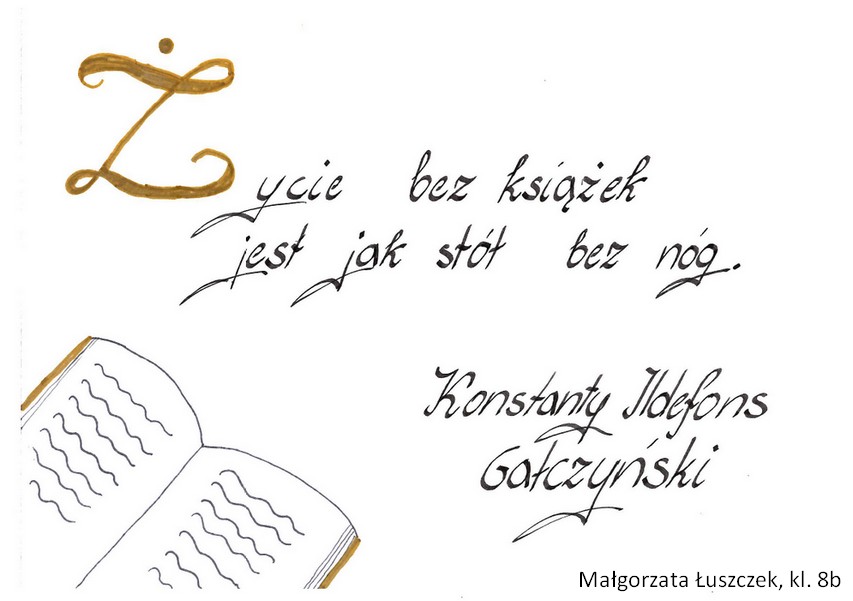 Życie bez książek
jest jak stół bez nóg.
Konstanty Ildefons
Gałczyński
Małgorzata Łuszczek, kl. 8b